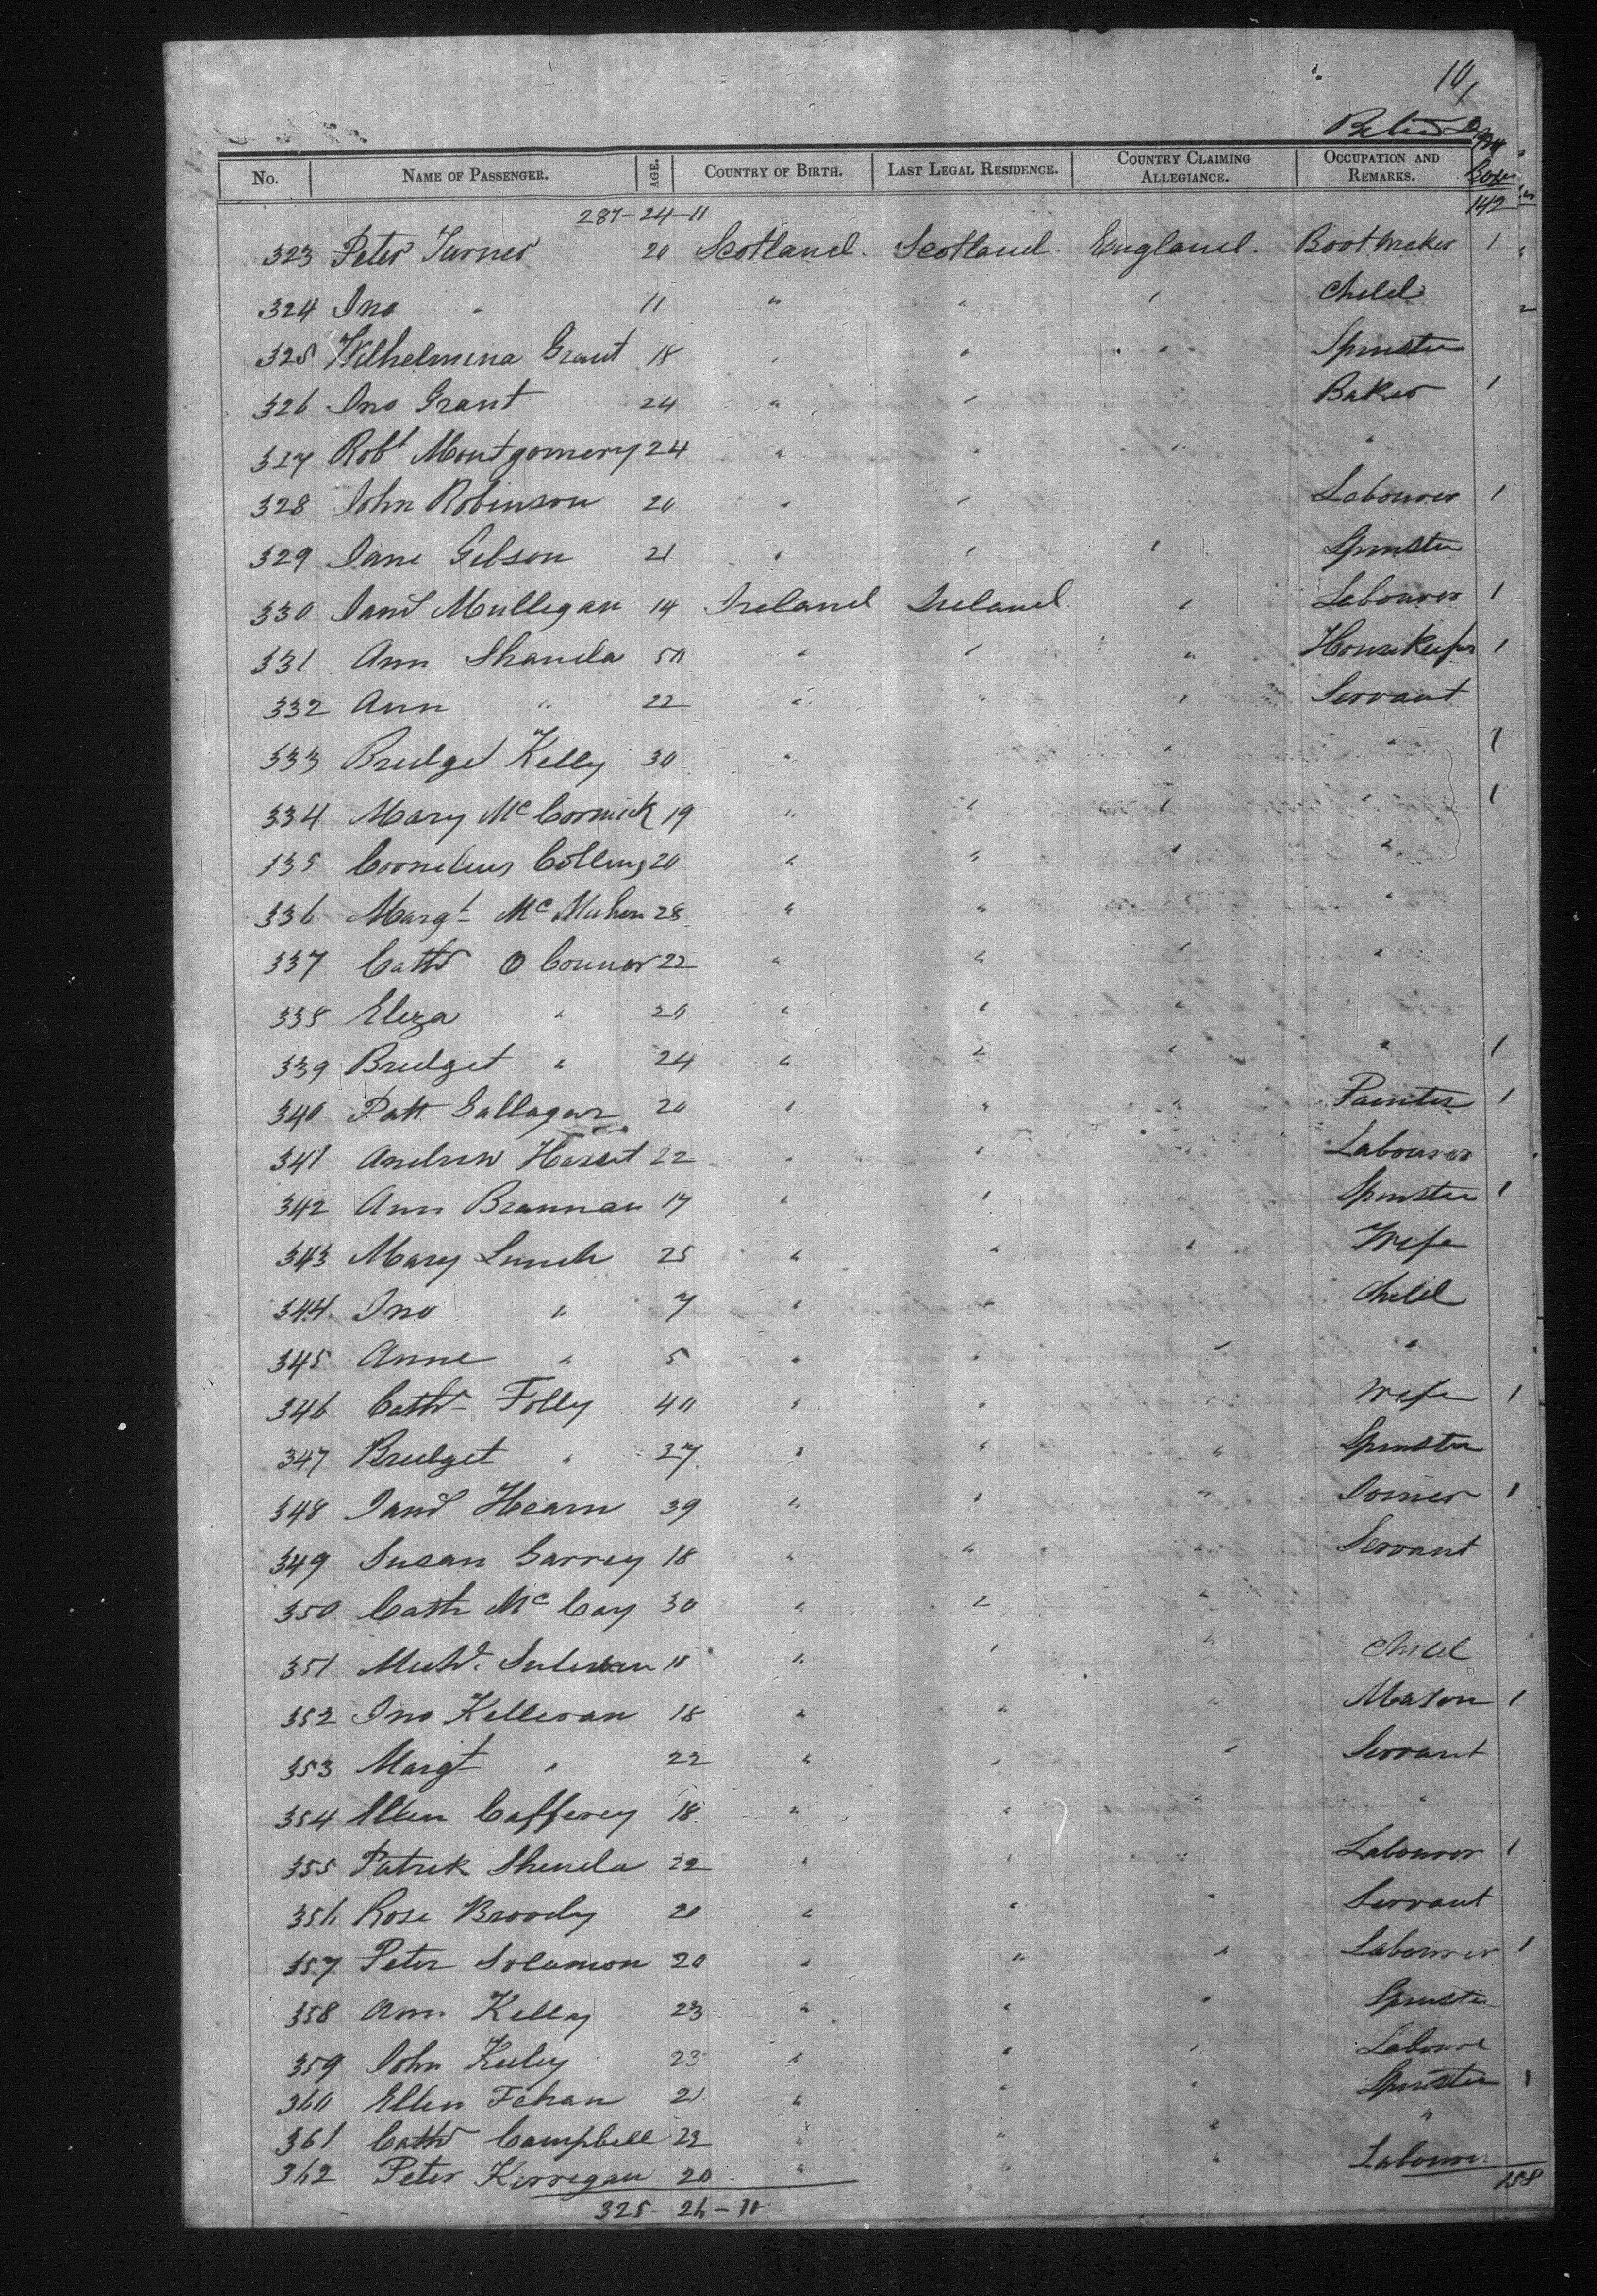 10/
No. NAME OF PASSENGER. AGE. COUNTRY OF BIRTH. LAST LEGAL RESIDENCE. COUNTRY CLAIMING ALLEGIANCE. OCCUPATION AND REMARKS.
287-24-11 142
323 Peter Turner 20 Scotland. Scotland England. Bootmaker 1
324 Jno " 11 " " " Child
325 Wilhelmina Grant 18 " " " Spinster
326 Jno Grant 24 " " Baker 1
327 Robt Montgomery 24 " " " "
328 John Robinson 20 " " Labourer 1
329 Jane Gibson 21 " " " Spinster
330 Mulligan 14 Ireland Ireland " Labourer 1
331 Ann Shanda 50 " " " Housekeeper 1
332 Ann " 22 " " " Servant
333 Bridget Kelly 30 " " " 1
334 Mary McCormick 19 " " " " 1
335 Cornelius Collins 20 " " " "
336 Margt McMahon 28 " " " "
337 Cath O Connor 22 " " " "
338 Eliza " 20 " " "
339 Bridget " 24 " " " " 1
340 Patt Gallagar 20 " " " Painter 1
341 Andrew 22 " " Labourer
342 Ann Brannan 17 " " " Spinster 1
343 Mary Lunch 25 " " " Wife
344 Jno " 7 " " " Child
345 Anne " 5 " " " "
346 Cath Folly 40 " " " Wife 1
347 Bridget " 27 " " " Spinster
348 Hearn 39 " " " Joiner 1
349 Susan Garrey 18 " " " Servant
350 Cath McCay 30 " " "
351 " " " Child
352 Jno Kelleran 18 " " " Mason 1
353 Margt " 22 " " " Servant
354 Caffery 18 " " " "
355 Patrick Shenda 22 " " Labourer 1
356 Rose Broody 20 " " " Servant
357 Peter Solomon 20 " " " Labourer 1
358 Ann Kelly 23 " " " Spinster
359 John Keely 23 " " " Laboure
360 Ellen Fehan 21 " " " Spinster 1
361 Cath Campbell 22 " " " "
362 Peter Kerrigan 20 " " " Labourer
158
325 - 26 - 11